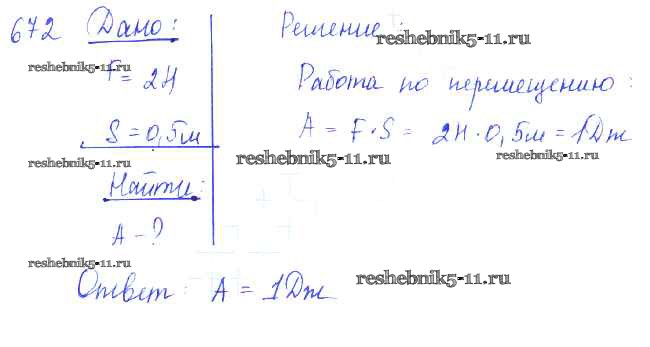 672 Дано:
F = 2Н
S = 0,5м
Найти:
A - ?
Решение:
Работа по перемещению:
A = F · S = 2Н · 0,5м = 1Дж
Ответ: A = 1Дж
reshebnik5-11.ru
reshebnik5-11.ru
reshebnik5-11.ru
reshebnik5-11.ru
reshebnik5-11.ru
reshebnik5-11.ru
reshebnik5-11.ru